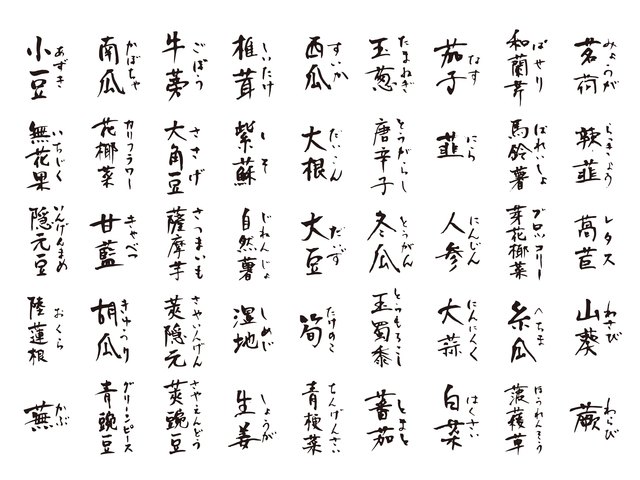 小豆
あずき
無花果
いちじく
隠元豆
いんげんまめ
陸蓮根
おくら
蕪
かぶ
南瓜
かぼちゃ
花椰菜
カリフラワー
甘藍
キャベツ
胡瓜
きゅうり
青豌豆
グリーンピース
牛蒡
ごぼう
大角豆
ささげ
薩摩芋
さつまいも
莢隠元
さやいんげん
莢豌豆
さやえんどう
椎茸
しいたけ
紫蘇
しそ
自然薯
じねんじょ
湿地
しめじ
生姜
しょうが
西瓜
すいか
大根
だいこん
大豆
だいず
筍
たけのこ
青梗菜
ちんげんさい
玉葱
たまねぎ
唐辛子
とうがらし
冬瓜
とうがん
玉蜀黍
とうもろこし
蕃茄
とまと
茄子
なす
韮
にら
人参
にんじん
大蒜
にんにく
白菜
はくさい
和蘭芹
ぱせり
馬鈴薯
ばれいしょ
芽花椰菜
ブロッコリー
糸瓜
へちま
菠薐草
ほうれんそう
茗荷
みょうが
辣韮
らっきょう
萵苣
レタス
山葵
わさび
蕨
わらび